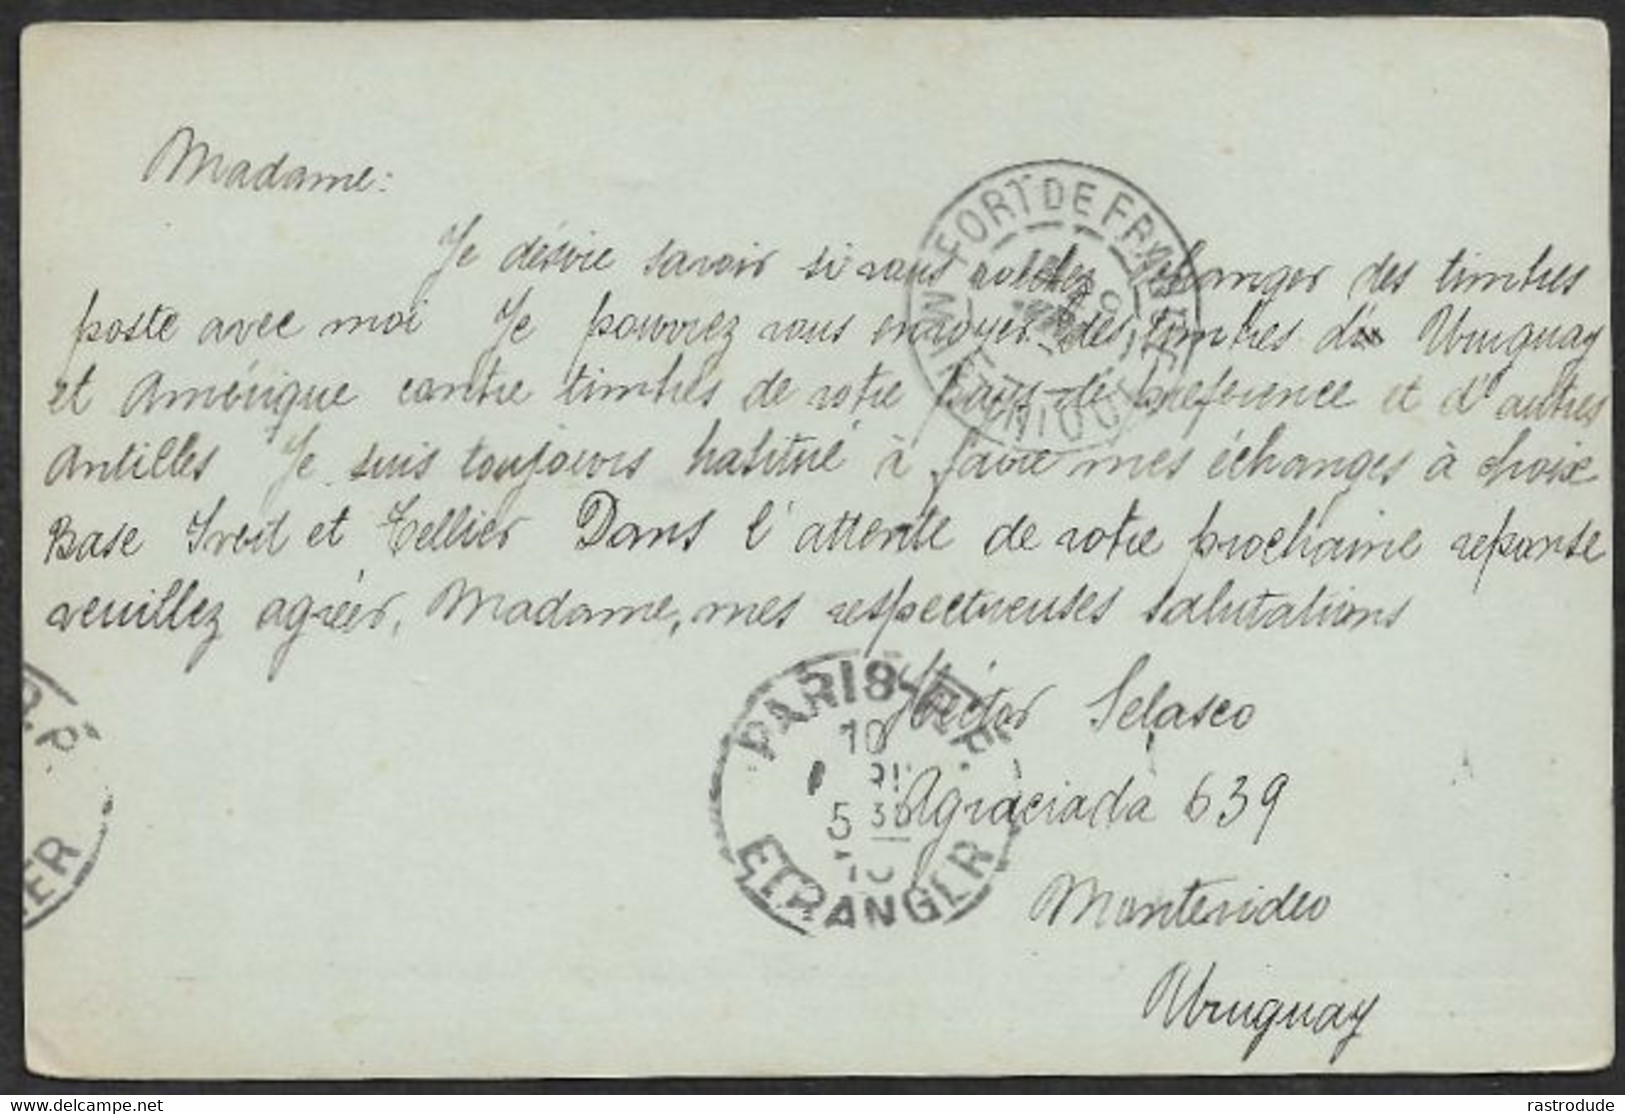 Madame:
Je désire savoir si vous voulez échanger des timbres
poste avec moi Je pourrez vous envoyer des timbres d' Uruguay
et Amérique contre timbres de votre pays de preference et d'autres
Antilles Je suis toujours habitué à faire mes échanges à choix
Base et Tellier Dans l'attente de votre prochaine reponse
veuillez agréer, Madame, mes respectueuses salutations
Héctor Selasco
Agraciada 639
Montevideo
Uruguay
FORT DE FRANCE
MARTINIQUE
PARIS
10
5 30
10
ETRANGER
R.P.
GER
delcampe.net
rastrodude